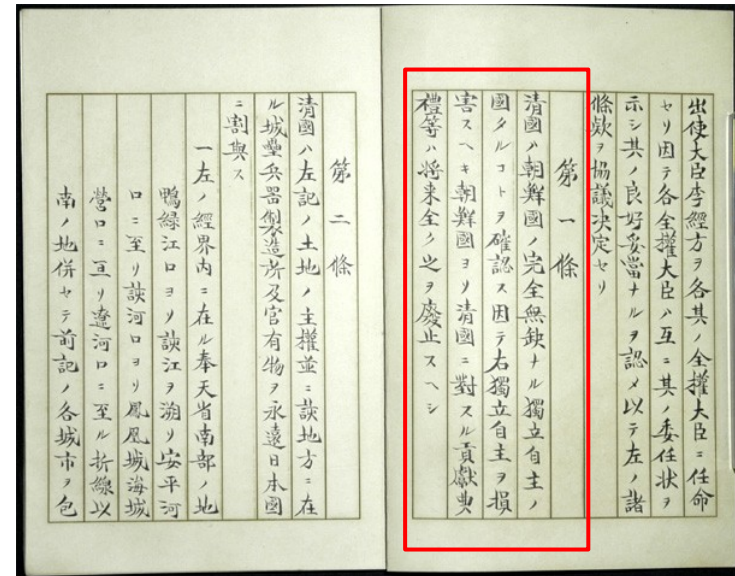 出使大臣李經方ヲ各其ノ全權大臣ニ任命
セリ因テ各全權大臣ハ互ニ其ノ委任狀ヲ
示シ其ノ良好妥當ナルヲ認メ以テ左ノ諸
條款ヲ協議決定セリ
第一條
清國ハ朝鮮國ノ完全無缺ナル獨立自主ノ
國タルコトヲ確認ス因テ右獨立自主ヲ損
害スヘキ朝鮮國ヨリ清國ニ對スル貢獻典
禮等ハ将来全ク之ヲ廢止スヘシ
第二條
清國ハ左記ノ土地ノ主權並ニ該地方ニ在
ル城壘兵器製造所及官有物ヲ永遠日本國
ニ割與ス
一左ノ經界内ニ在ル奉天省南部ノ地
鴨緑江口ヨリ該江ヲ溯リ安平河
口ニ至リ該河口ヨリ鳳凰城海城
營口ニ亘リ遼河口ニ至ル折線以
南ノ地併セテ前記ノ各城市ヲ包